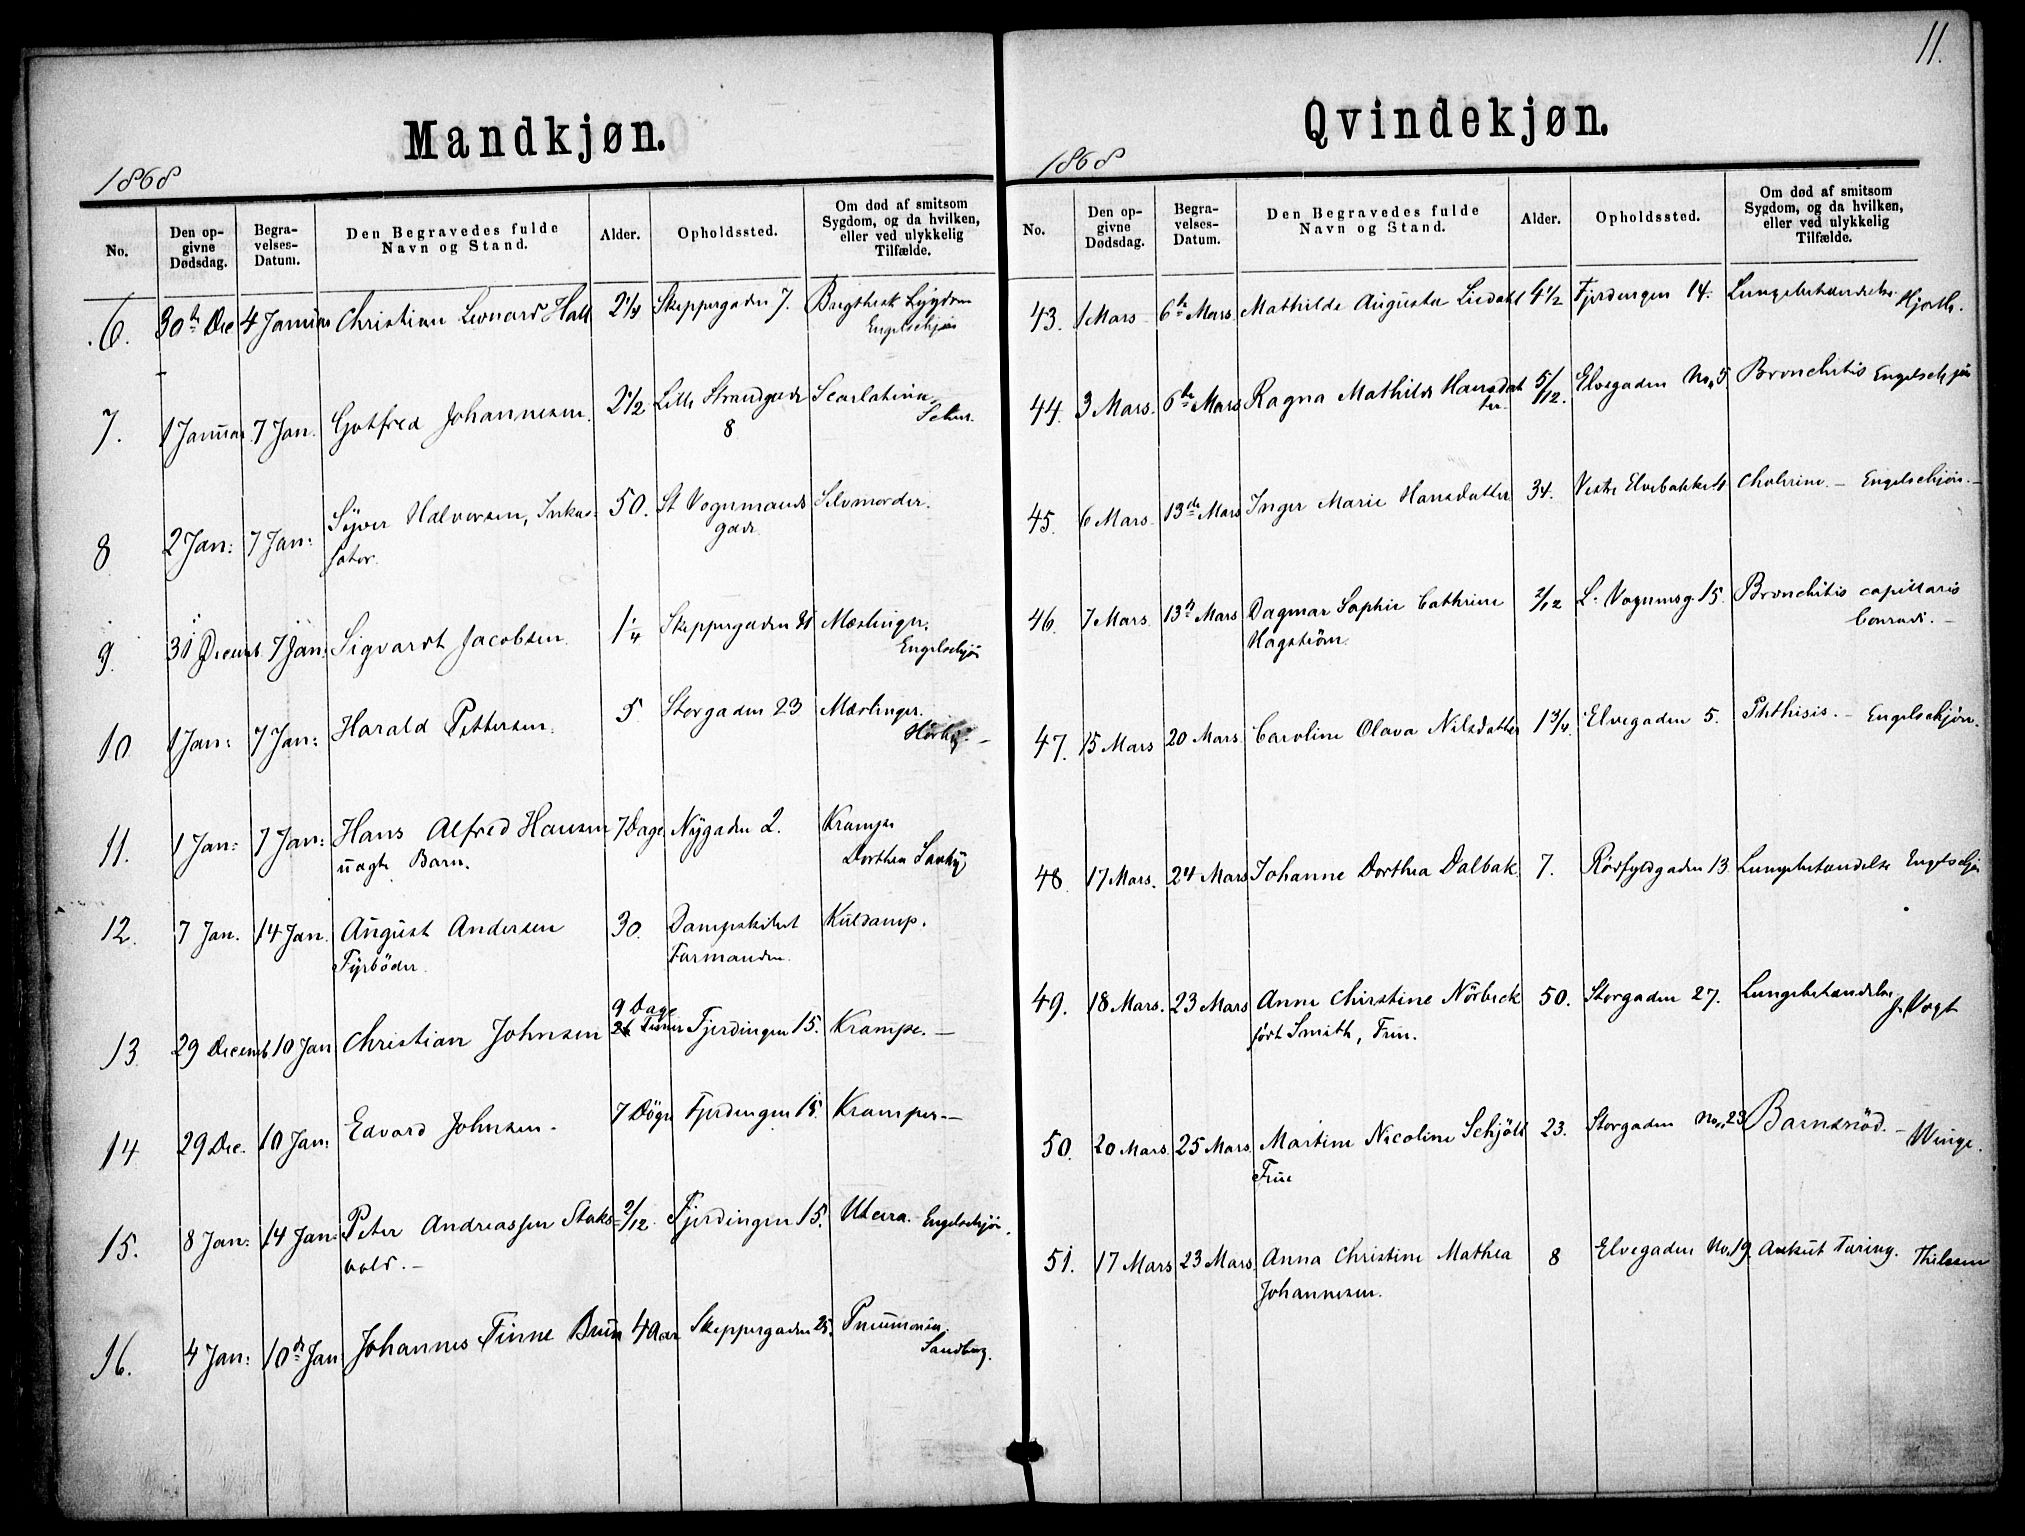 11.
Mandkjøn.
1868
No. Den opgivne Dødsdag. Begravelses-Datum. Den Begravedes fulde Navn og Stand. Alder. Opholdssted. Om død af smitsom Sygdom, og da hvilken, eller ved ulykkelig Tilfælde.
6. 30th Dec 4 Januar Christian Leonard Hall 2 1/4 Skeppergaden 7. Brystsyk Sygdom
Engelschjøn
7. 1 Januar 7 Jan. Gotfred Johannesen 2 1/2 Lille Strandgade Scarlatina
8
8 2 Jan: 7 Jan: Syver Halvorsen, Inkas- 50. St Vognmands Selvmorder.
sator. gade
9. 31 Decemb. 7 Jan: Sigvardt Jacobsen. 1 1/4 Skeppergaden 21 Mæslinger.
Engelschjøn
10 1 Jan: 7 Jan: Harald Pettersen. 5 Storgaden 23 Mæslinger.
11. 1 Jan: 7 Jan: Hans Alfred Hansen 7 Dage Nygaden 2. Krampe
uægte Barn. Dorthea
12. 7 Jan. 14 Jan. August Andersen 30. Dampskibet Kuldamp.
Fyrbøder. Farmanden.
13 29 Decemb 10 Jan Christian Johnsen 9 Dage Fjerdingen 15. Krampe. —
14 29 Dec. 10 Jan: Edvard Johnsen. 7 Døgn Fjerdingen 15. Kramper —
15. 8 Jan: 14 Jan: Peter Andreassen Staks- 2/12. Fjerdingen 15. Engelschjøn.
vold. —
16. 4 Jan: 10de Jan Johannes Finne Bruun 4 Aar Skeppergaden 25. Pneumonia.
Sandberg.
Qvindekjøn.
1868
No. Den opgivne Dødsdag. Begravelses-Datum. Den Begravedes fulde Navn og Stand. Alder. Opholdssted. Om død af smitsom Sygdom, og da hvilken, eller ved ulykkelig Tilfælde.
43. 1 Mars 6te Mars. Mathilde Augusta Liedahl 4 1/2 Fjerdingen 14. Lungebetændelse Hjorth.
44. 3 Mars. 6te Mars Ragna Mathilde Hansdat 5/12. Elvegaden No. 5 Bronchitis Engelschjøn
ter.
45. 6 Mars. 13de Mars Inger Marie Hansdatter 34. Vestre Elvebakken 4 Cholerine. — Engelschjøn. —
46. 7 Mars. 13de Mars Dagmar Sophie Cathrine 2/12 L. Vognmsg. 15. Bronchitis capillaris
Hagstrøm. Conradi. —
47. 15 Mars 20 Mars. Caroline Olava Nilsdatter 1 3/4. Elvegaden 5. Phthisis. — Engelschjøn.
48. 17 Mars. 24 Mars Johanne Dorthea Dalbak. 7. Rødfyldgaden 13 Lungebetændelse Engelschjøn
49. 18 Mars. 23 Mars Anne Christine Nörbeck 50. Storgaden 27. Lungebetændelse
født Smith, Frue. J. Vogt
50. 20 Mars. 25 Mars. Martine Nicoline Schjöll 23. Storgaden No. 23 Barnsnød. — Winge.
Frue
51. 17 Mars 23 Mars. Anna Christine Mathea 8 Elvegaden No. 19. Ankut Tæring. Thilesen
Johannesen.